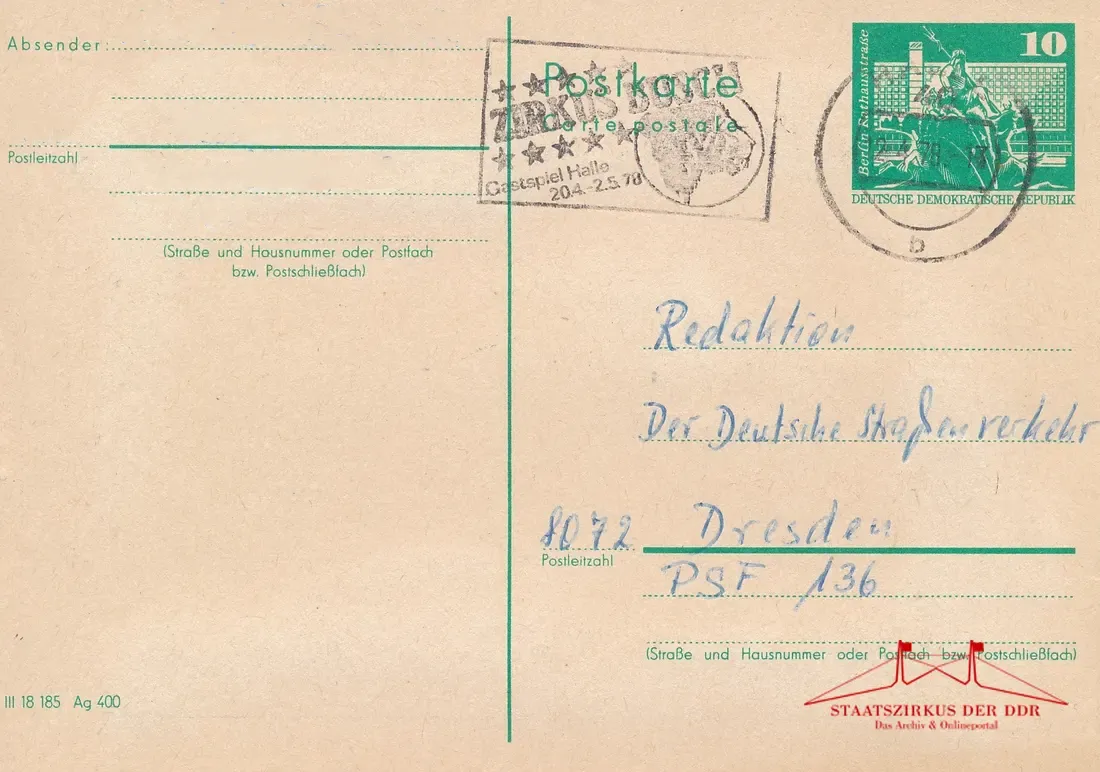 Absender:
Postleitzahl
(Straße und Hausnummer oder Postfach
bzw. Postschließfach)
III 18 185 Ag 400
Postkarte
Carte postale
ZIRKUS
Gastspiel Halle
20.4.-2.5.78
10
Berlin Rathausstraße
DEUTSCHE DEMOKRATISCHE REPUBLIK
b
Redaktion
Der Deutsche Straßenverkehr
8072 Dresden
Postleitzahl
PSF 136
(Straße und Hausnummer oder Postfach bzw. Postschließfach)
STAATSZIRKUS DER DDR
Das Archiv & Onlineportal